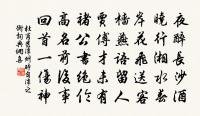 夜醉長沙酒
曉行湘水春
岸花飛送客
檣燕語留人
賈傅才未有
褚公書絕倫
高名前後事
回首一傷神
杜甫發潭州時自潭之
衡詞典網